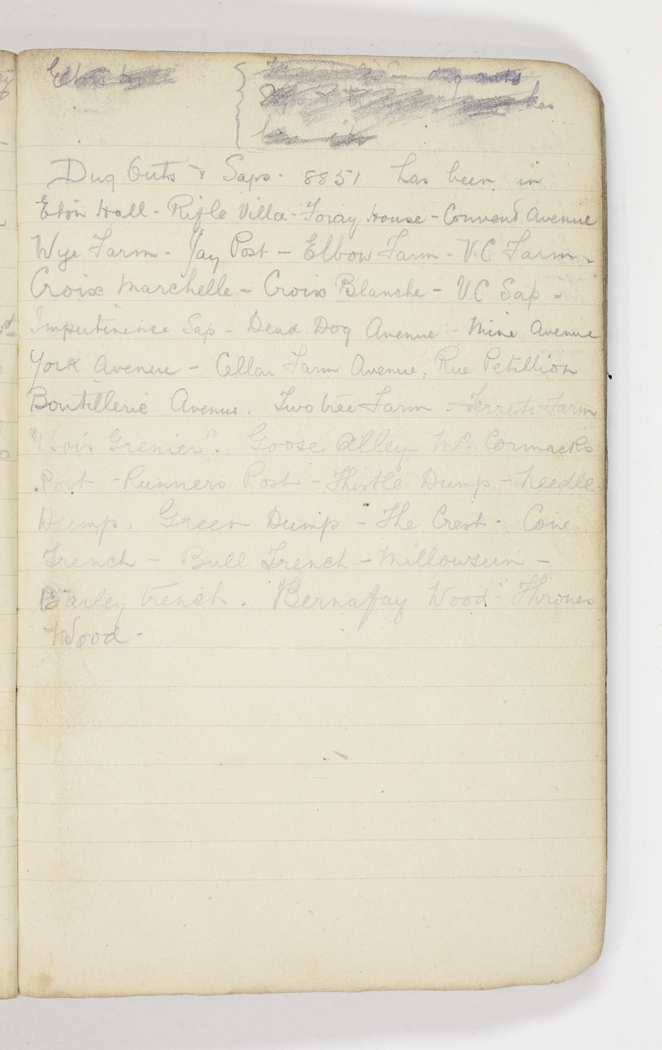 dug outs
has
Dug Outs & Saps. 8851 has been in
Eton Hall - Rifle Villa - Foray House - Convent Avenue
Wye Farm - Jay Post - Elbow Farm - V.C Farm -
Croix Marchelle - Croix Blanche - V.C Sap -
Impertinence Sap - Dead Dog Avenue - Mine Avenue
York Aveneu - Cellar Farm Avenue, Rue Petillion
Boutillerie Avenue. Two tree Farm - Ferrets Farm
"Bois Grenier". Goose Alley Mc Cormacks
Post - Runners Post - Thistle Dump - Needle
Dump. Green Dump - The Crest - Cow
Trench - Bull Trench -
Barley trench. Bernafay Wood - Thrones
Wood -